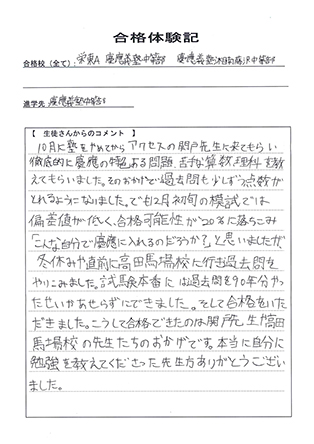 合格体験記
合格校(全て): 栄東A 慶應義塾中等部 慶應義塾湘南藤沢中等部
進学先 慶應義塾中等部
【 生徒さんからのコメント 】
10月に塾をやめてからアクセスの関戸先生に来てもらい
徹底的に慶應の特色ある問題、苦手な算数、理科を教
えてもらいました。そのおかげで過去問も少しずつ点数が
とれるようになりました。でも12月初旬の模試では
偏差値が低く、合格可能性が20%に落ちこみ
「こんな自分で慶應に入れるのだろうか?」と思いましたが、
冬休みや直前に高田馬場校に行き過去問を
やりこみました。試験本番には過去問を90年分やっ
たせいかあせらずにできました。そして合格をいた
だきました。こうして合格できたのは関戸先生や高田
馬場校の先生たちのおかげです。本当に自分に
勉強を教えてくださった先生方ありがとうござい
ました。